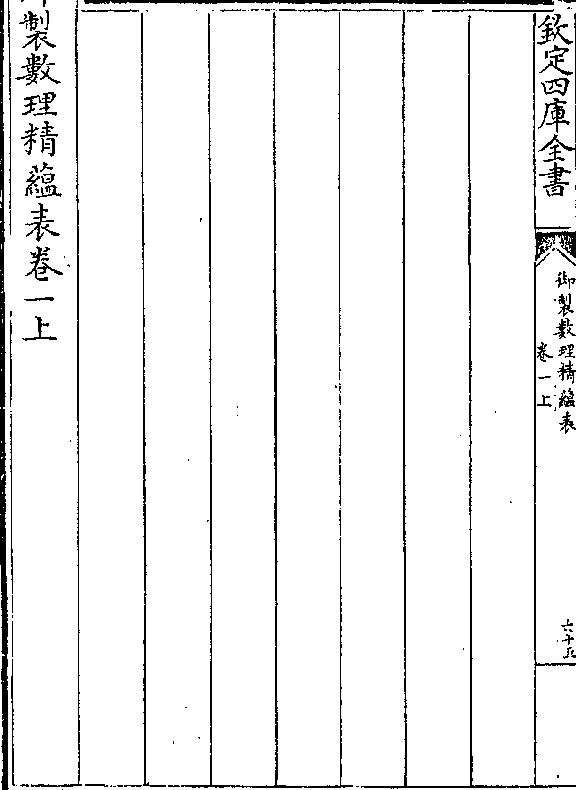 欽定四庫全書
御製數理精蘊表
卷一上
六十五
製數理精蘊表卷一上